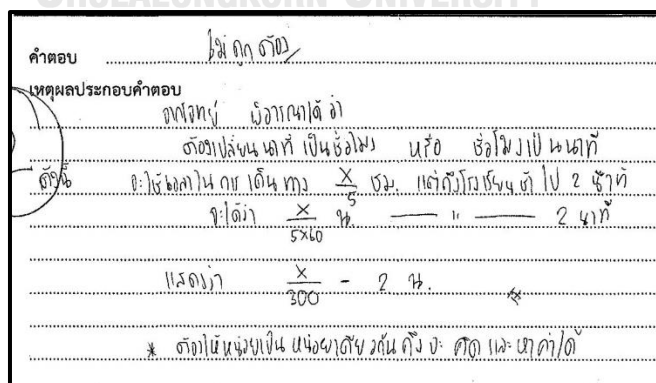 CHULALONGKORN UNIVERSITY
คำตอบ ไม่ถูกต้อง
เหตุผลประกอบคำตอบ
จากโจทย์ พิจารณาได้ว่า
ต้องเปลี่ยนนาที เป็นชั่วโมง หรือ ชั่วโมงเป็นนาที
ดังนั้น จะใช้เวลาในการเดินทาง x/5 ชม. แต่ถึงโรงเรียนช้าไป 2 นาที
จะได้ว่า x/5×60 น. — " — 2 นาที
แสดงว่า x/300 - 2 น.
* ต้องให้หน่วยเป็นหน่วยเดียวกัน ถึงจะ คิด และหาค่าได้